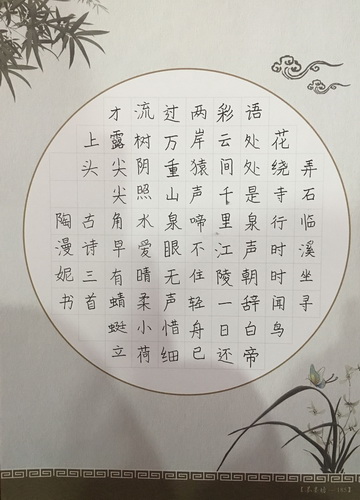 弄石临溪坐寻
花绕寺行时时闻鸟
语处处是泉声朝辞白帝
彩云间千里江陵一日还
两岸猿声啼不住轻舟已
过万重山泉眼无声惜细
流树阴照水爱晴柔小荷
才露尖尖角早有蜻蜓立
上头 古诗三首
陶漫妮书